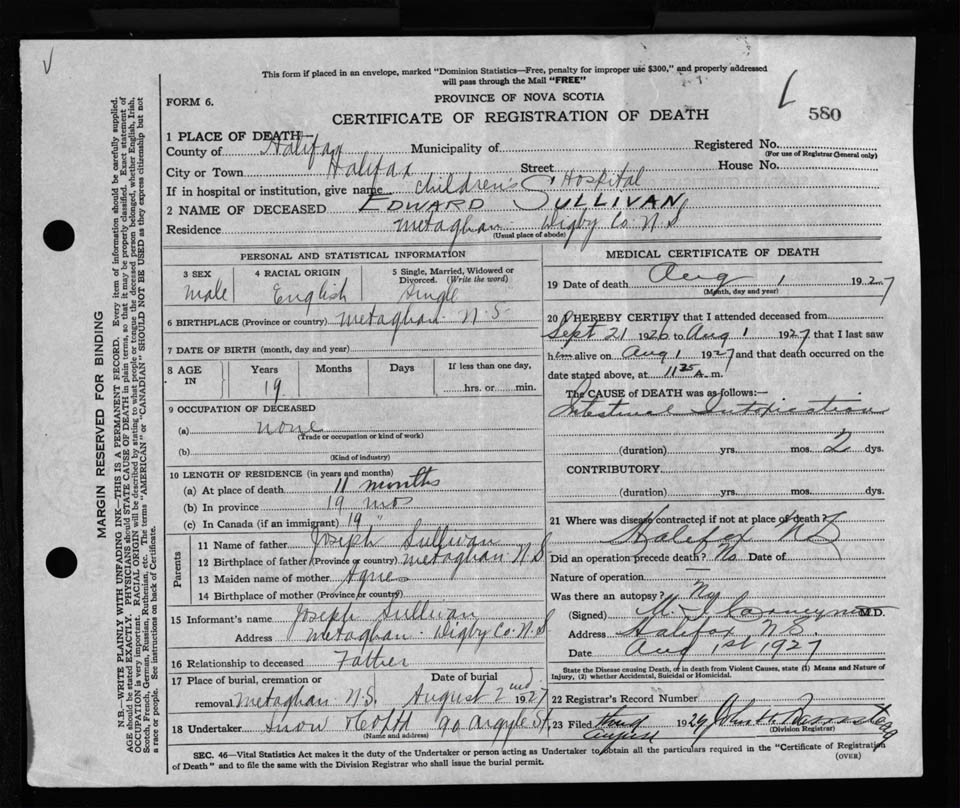 This form if placed in an envelope, marked "Dominion Statistics—Free, penalty for improper use $300," and properly addressed
will pass through the Mail "FREE"
FORM 6.
PROVINCE OF NOVA SCOTIA
CERTIFICATE OF REGISTRATION OF DEATH
580
1 PLACE OF DEATH—
County of Halifax Municipality of Registered No.
(For use of Registrar General only)
City or Town Halifax Street House No.
If in hospital or institution, give name Children's Hospital
2 NAME OF DECEASED EDWARD SULLIVAN
Residence Metaghan Digby Co N.S
(Usual place of abode)
PERSONAL AND STATISTICAL INFORMATION
3 SEX
Male
4 RACIAL ORIGIN
English
5 Single, Married, Widowed or
Divorced. (Write the word)
Single
6 BIRTHPLACE (Province or country) Metaghan N.S.
7 DATE OF BIRTH (month, day and year)
8 AGE
IN
Years Months Days If less than one day,
19
hrs. or min.
9 OCCUPATION OF DECEASED
(a) none
(Trade or occupation or kind of work)
(b)
(Kind of industry)
10 LENGTH OF RESIDENCE (in years and months)
(a) At place of death 11 months
(b) In province 19 mos
(c) In Canada (if an immigrant) 19 "
Parents
11 Name of father Joseph Sullivan
12 Birthplace of father (Province or country) Metaghan N.S
13 Maiden name of mother Agnes
14 Birthplace of mother (Province or country)
15 Informant's name Joseph Sullivan
Address Metaghan Digby Co. N.S
16 Relationship to deceased Father
17 Place of burial, cremation or
removal Metaghan N.S.
Date of burial
August 2nd 1927
18 Undertaker Snow & Co Ltd 90 Argyle St.
(Name and address)
MEDICAL CERTIFICATE OF DEATH
19 Date of death Aug 1 1927
(Month, day and year)
20 I HEREBY CERTIFY that I attended deceased from
Sept 21 1926 to Aug 1 1927 that I last saw
him alive on Aug 1 1927 and that death occurred on the
date stated above, at 11 25 A.m.
The CAUSE OF DEATH was as follows:—
Intestinal Intoxication
(duration) yrs. mos. 2 dys.
CONTRIBUTORY
(duration) yrs. mos. dys.
21 Where was disease contracted if not at place of death?
Halifax N.S
Did an operation precede death? No Date of
Nature of operation —
Was there an autopsy? No
(Signed) M. J. M.D.
Address Halifax N.S.
Date Aug 1st 1927
State the Disease causing Death, or in death from Violent Causes, state (1) Means and Nature of
Injury, (2) whether Accidental, Suicidal or Homicidal.
22 Registrar's Record Number
23 Filed August 192
(Division Registrar)
SEC. 46—Vital Statistics Act makes it the duty of the Undertaker or person acting as Undertaker to obtain all the particulars required in the "Certificate of Registration
of Death" and to file the same with the Division Registrar who shall issue the burial permit.
(OVER)
MARGIN RESERVED FOR BINDING
N.B.—WRITE PLAINLY WITH UNFADING INK—THIS IS A PERMANENT RECORD. Every item of information should be carefully supplied.
AGE should be stated EXACTLY. PHYSICIANS should STATE CAUSE OF DEATH in plain terms, so that it may be properly classified. Exact statement of
OCCUPATION is very important. RACIAL ORIGIN will be described by stating to what people or tongue the deceased person belonged, whether English, Irish,
Scotch, French, German, Russian, Ruthenian, etc. The terms "AMERICAN" or "CANADIAN" SHOULD NOT BE USED as they express citizenship but not
a race or people. See instructions on back of Certificate.